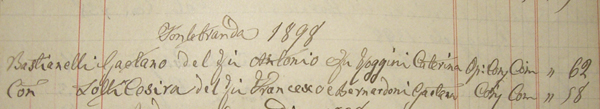 Fontebranda 1898
Bastianelli Gaetano del fu Antonio Fu Poggini Caterina Op: Con: Com " 62
Con Lolli Cosira del fu Francesco e Bernardoni Gaetana Com " 58